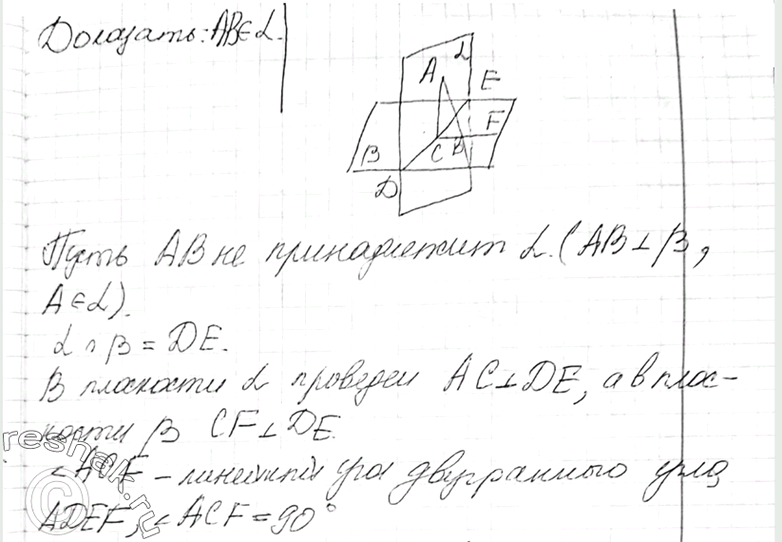 Доказать: AB∈α.
A α E
B C B F
D
Пусть AB не принадлежит α. (AB⊥β,
A∈α).
α∩β = DE.
В плоскости α проведем AC⊥DE, а в плос-
кости β CF⊥DE.
∠ACF – линейный угол двугранного угла
ADEF, ∠ACF = 90°
reshak.ru
©